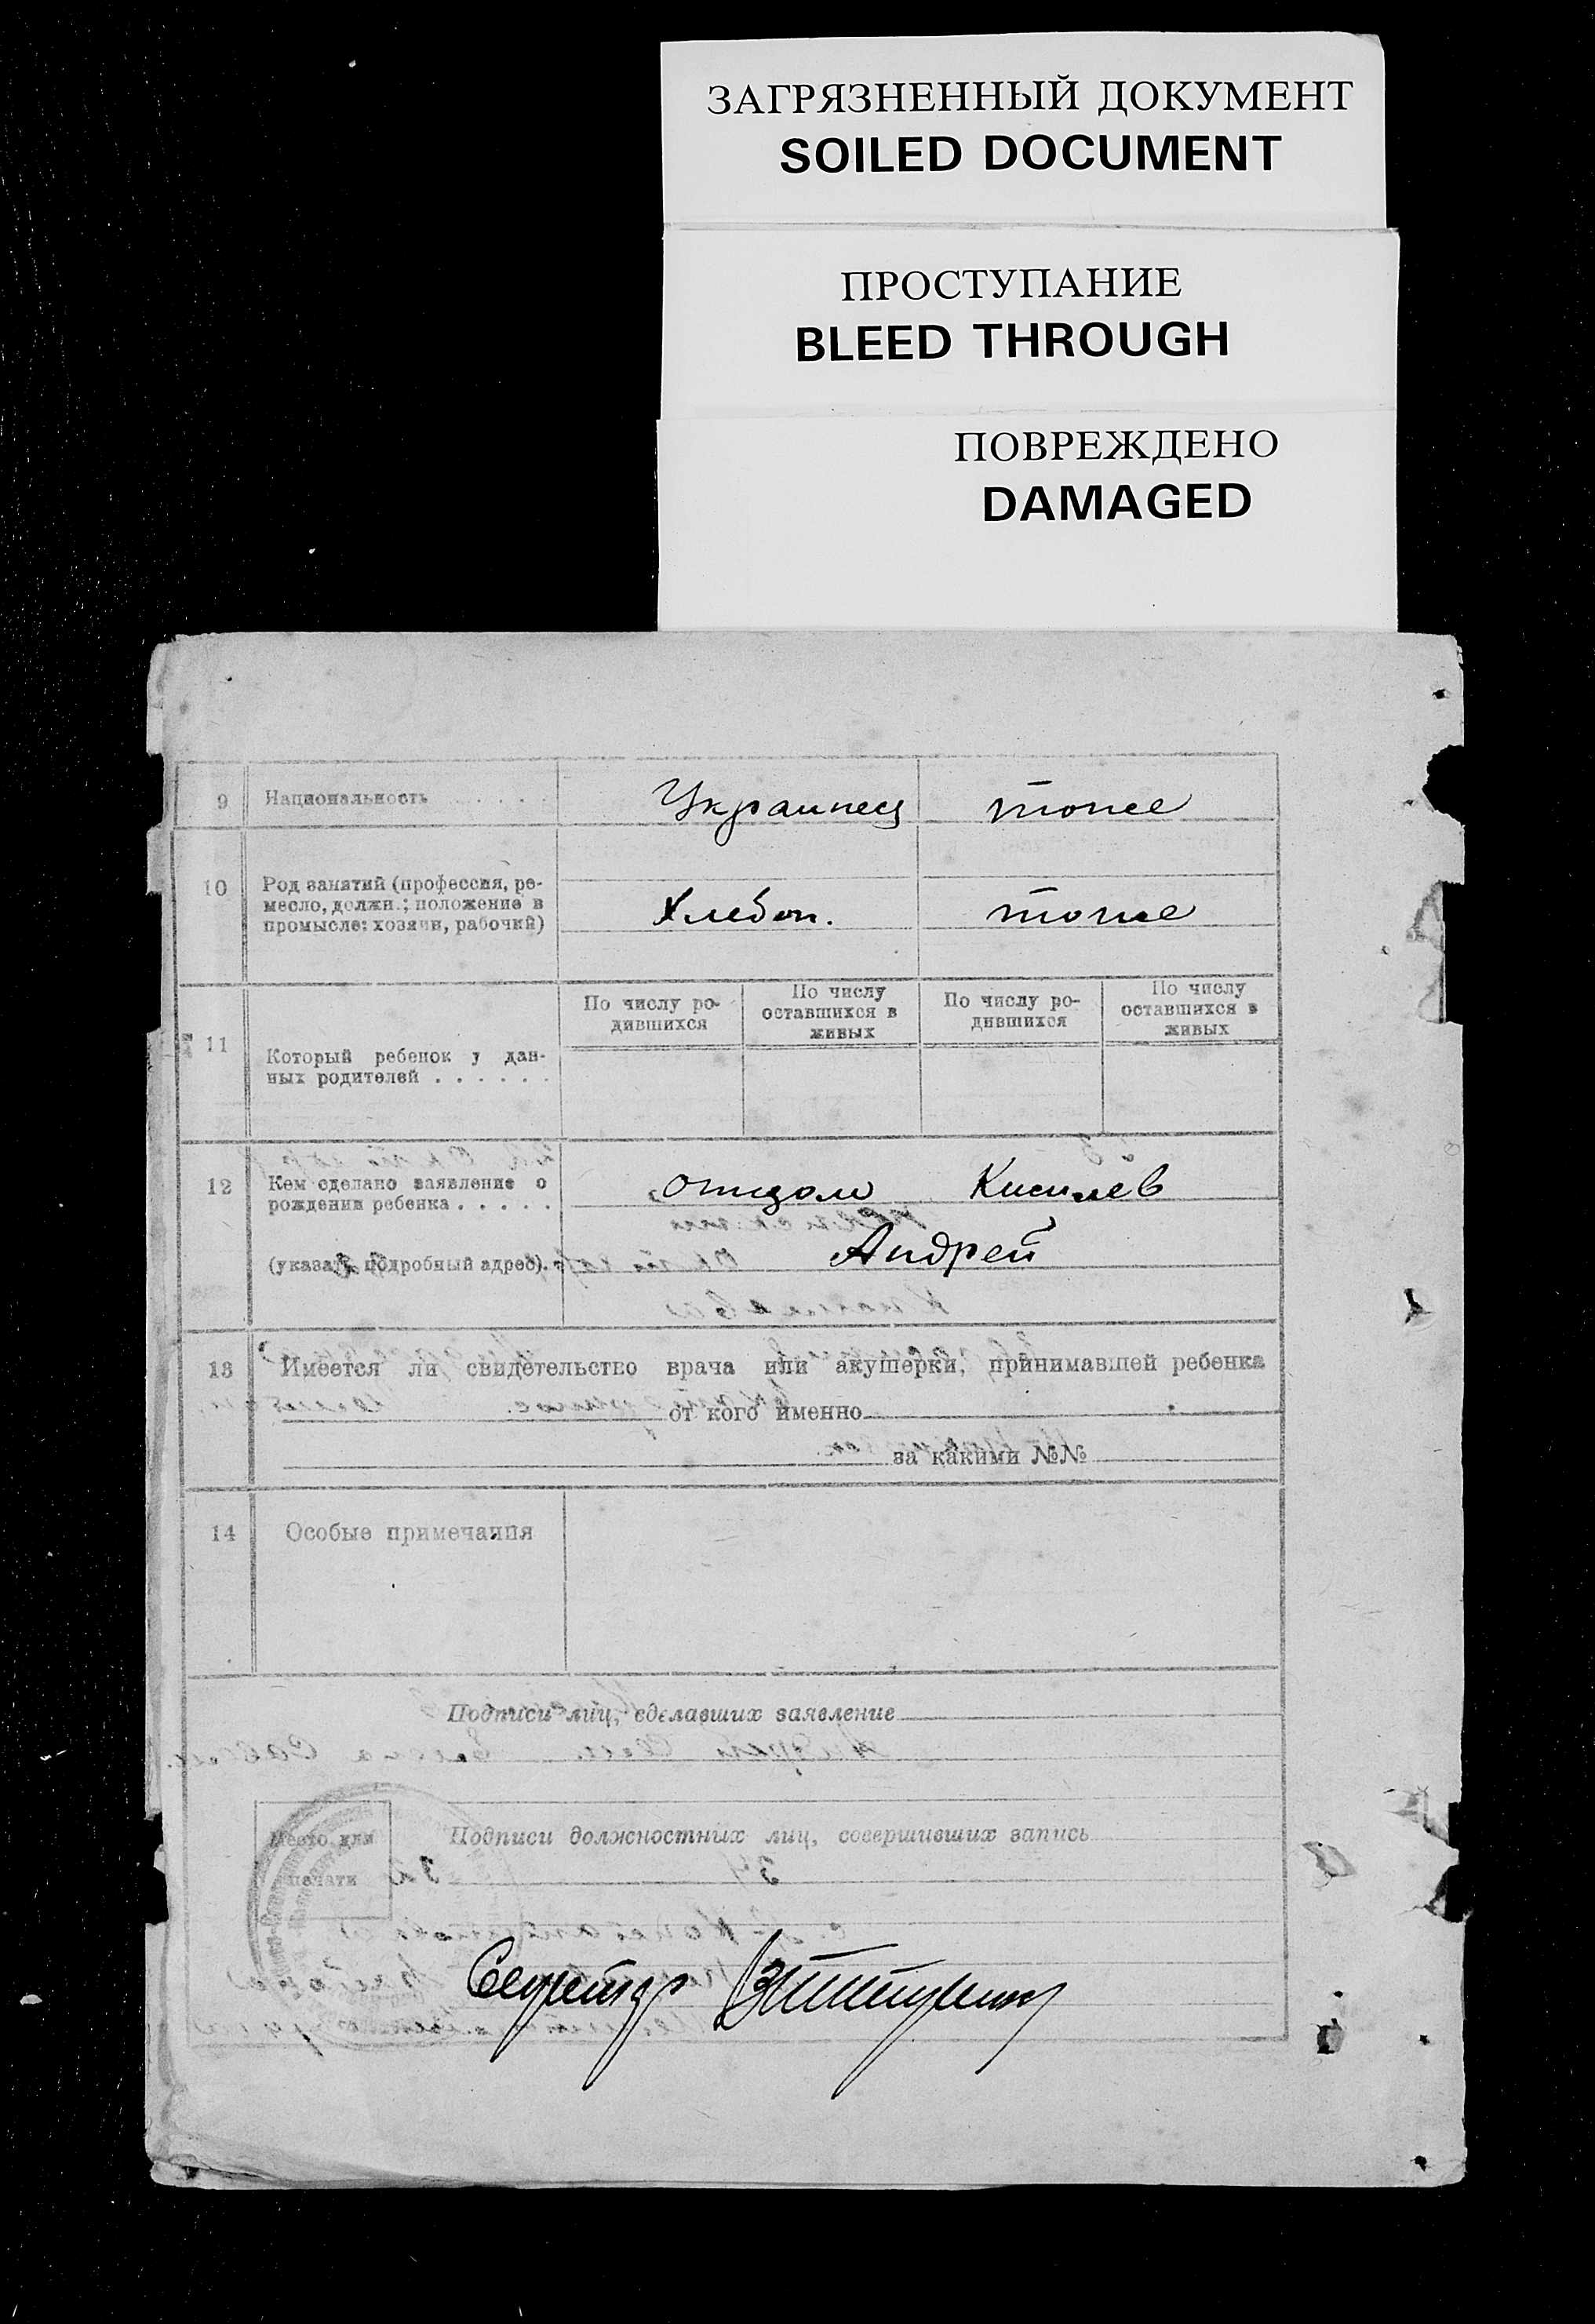 ЗАГРЯЗНЕННЫЙ ДОКУМЕНТ
SOILED DOCUMENT
ПРОСТУПАНИЕ
BLEED THROUGH
ПОВРЕЖДЕНО
DAMAGED
9 Национальность . . . . . Украинец тоже
10 Род занятий (профессия, ре-
месло, должн.; положение в
промысле: хозяин, рабочий) Хлебоп. тоже
По числу ро-
дившихся
По числу
оставшихся в
живых
По числу ро-
дившихся
По числу
оставшихся в
живых
11 Который ребенок у дан-
ных родителей . . . . . .
12 Кем сделано заявление о
рождении ребенка . . . . . отцом Кисилев
(указать подробный адрес). Андрей
13 Имеется ли свидетельство врача или акушерки, принимавшей ребенка
от кого именно
за какими №№
14 Особые примечания
Подписи лиц, сделавших заявление
Место для
печати
Подписи должностных лиц, совершивших запись
Секретар